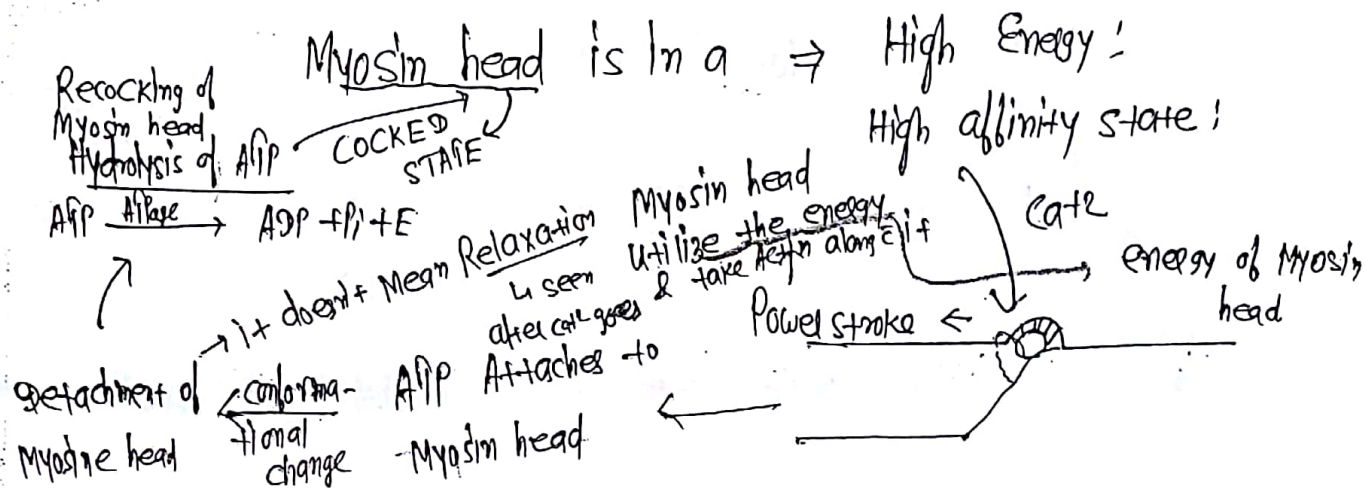 Myosin head is In a ⇒ High Energy!
High affinity state!
Recocking of
Myosin head
Hydrolysis of ATP
COCKED
STATE
ATP ATPase → ADP + Pi + E
Ca+2
Myosin head
Utilize the energy
& take Actin along c̄ it
energy of Myosin
head
Power stroke ←
→ it doesn't Mean Relaxation
↳ seen
after Ca+2 goes
ATP Attaches to
Myosin head
conforma-
tional
change
Detachment of
Myosine head